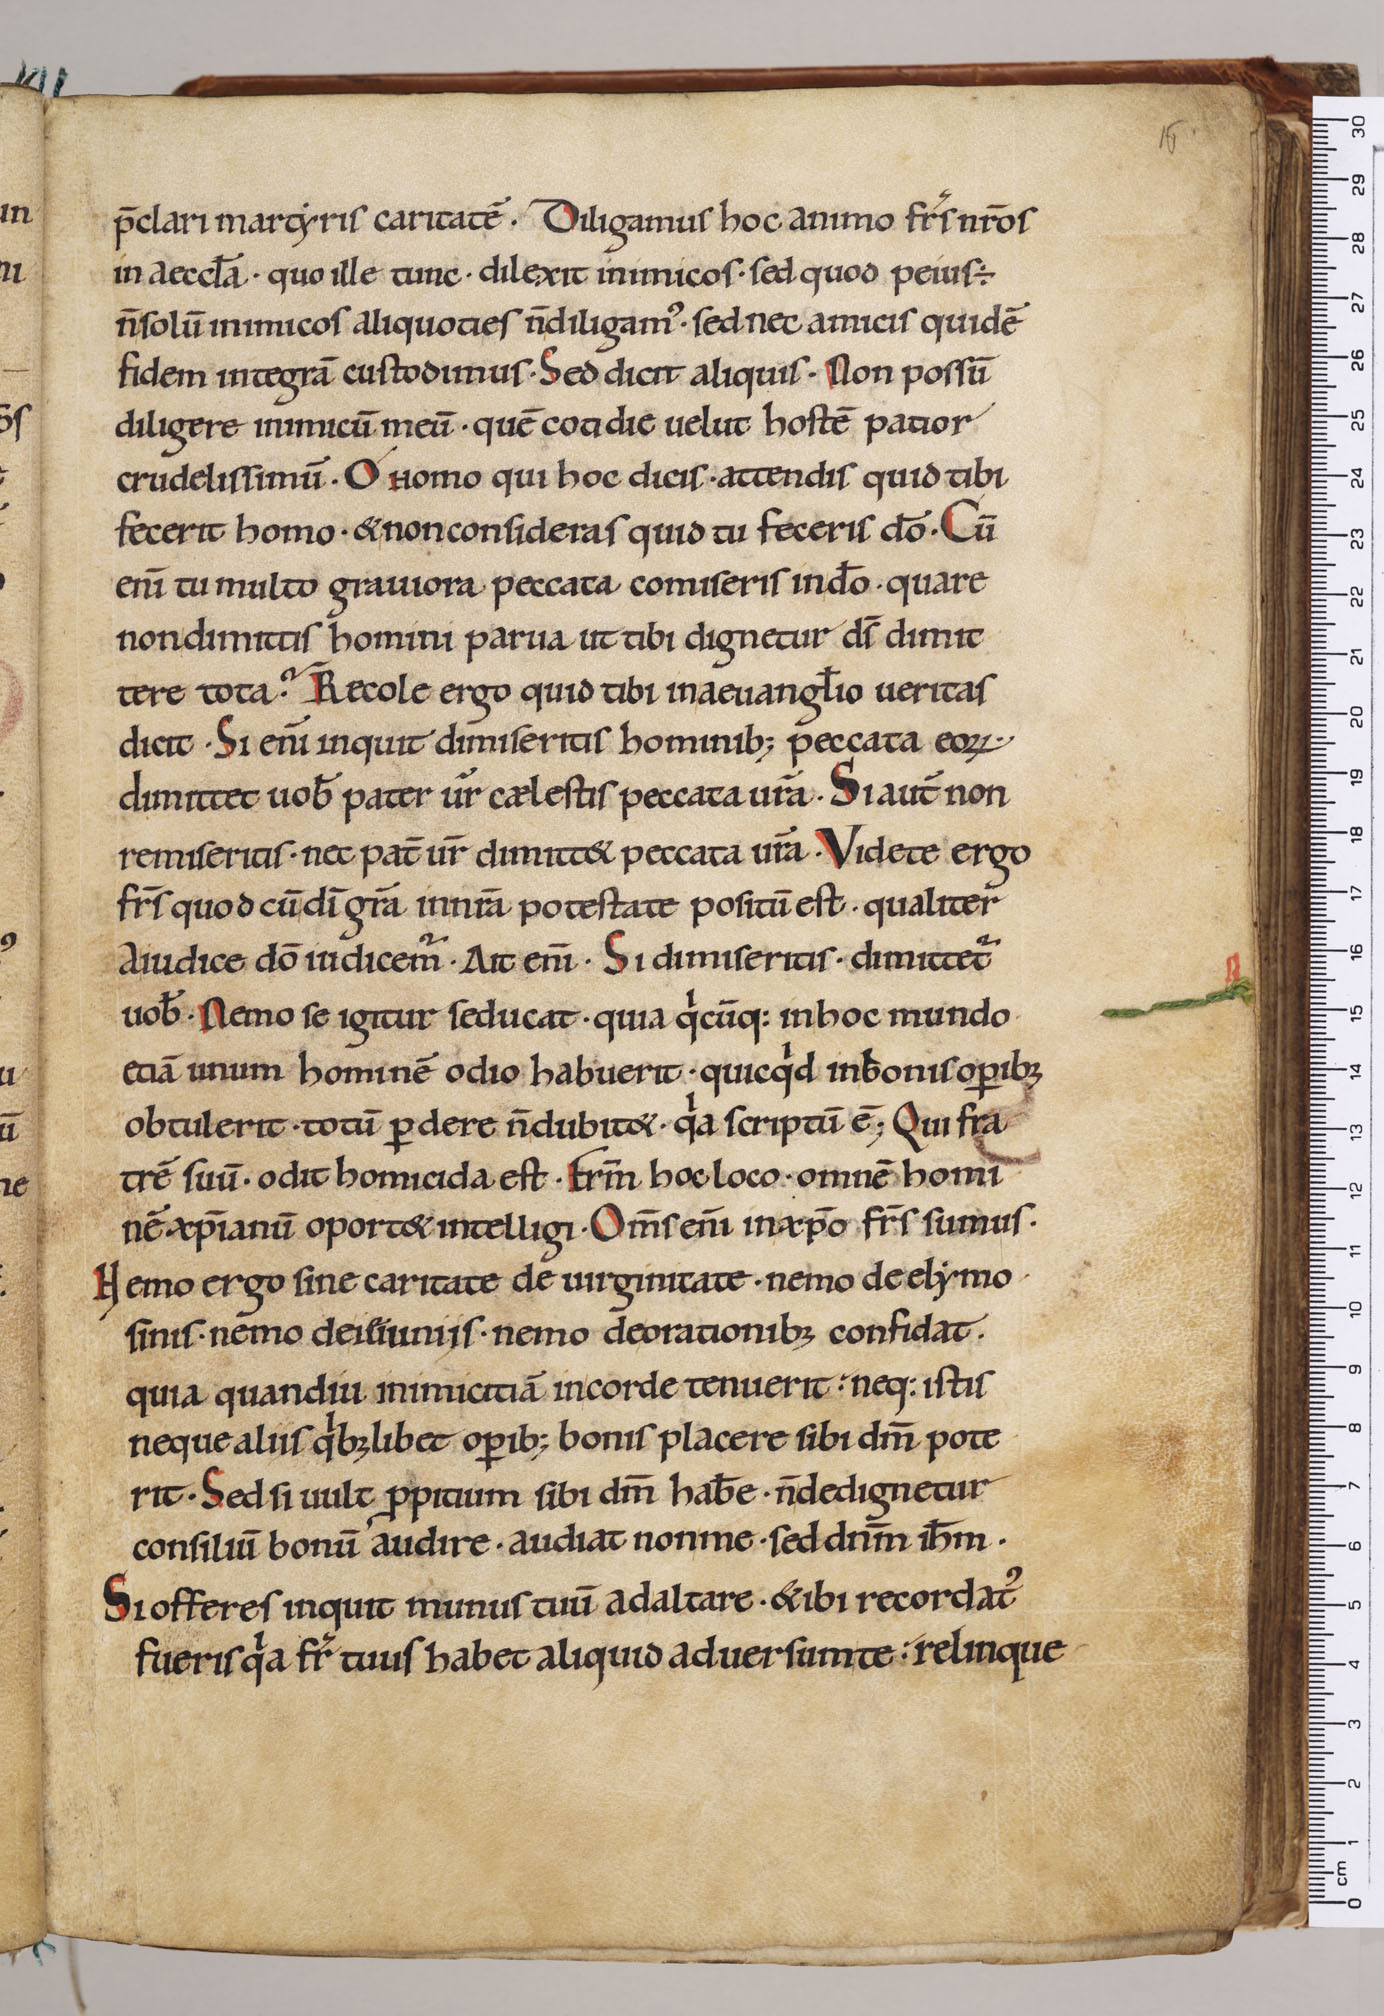 15
p̄clari martẏris caritatē. Diligamus hoc animo fr̄s nr̄os
in aeccl̄a · quo ille tunc · dilexit inimicos · sed quod peius ÷
n̄ solū inimicos aliquoties n̄ diligam᾿ · sed nec amicis quidē
fidem integrā custodimus · Sed dicit aliquis · Non possū
diligere inimicū meū · quē cotidie uelut hostē patior
crudelissimū · O homo qui hoc dicis · attendis quid tibi
fecerit homo · & non consideras quid tu feceris dō · Cū
eni᷎ tu multo grauiora peccata comiseris in dō · quare
non dimittis homini parua ut tibi dignetur ds̄ dimit
tere tota? Recole ergo quid tibi in aeuangl̄io ueritas
dicit · Si eni᷎ inquit dimiseritis hominib; peccata eoꝝ ·
dimittet uob̄ pater ur̄ cælestis peccata ur̄a · Si aut̄ non
remiseritis · nec pat̄ ur̄ dimitt& peccata ur̄a · Videte ergo
fr̄s quod cū dī gr̄a in nr̄a potestate positū est · qualiter
a iudice dō iudicem᷑ · Ait eni᷎ · Si dimiseritis · dimittet᷑
uob̄ · Nemo se igitur seducat · quia qͥcūq: in hoc mundo
etiā unum hominē odio habuerit · quicqͥd in bonis oꝑibꝫ
obtulerit · totū ꝑdere n̄ dubit& · qͥa scriptū ē; Qui fra
trē suū · odit homicida est · Frm̄ hoc loco · omnē homi
nē xp̄ianū oport& intelligi · Om̄s eni᷎ in xp̄o fr̄s sumus ·
Nemo ergo sine caritate de uirginitate · nemo de elẏmo
sinis · nemo de ieiuniis · nemo de orationibꝫ confidat ·
quia quandiu inimicitiā in corde tenuerit : neq: istis
neque aliis qͥbꝫlibet oꝑib; bonis placere sibi dm̄ pote
rit · Sed si uult ꝓpitium sibi dm̄ hab̄e · n̄ dedignetur
consiliū bonū audire · audiat non me · sed dnm̄ ih̄m ·
Si offeres inquit munus tuū ad altare · & ibi recordat᾿
fueris qͥa fr̄ tuus habet aliquid aduersum te : relinque